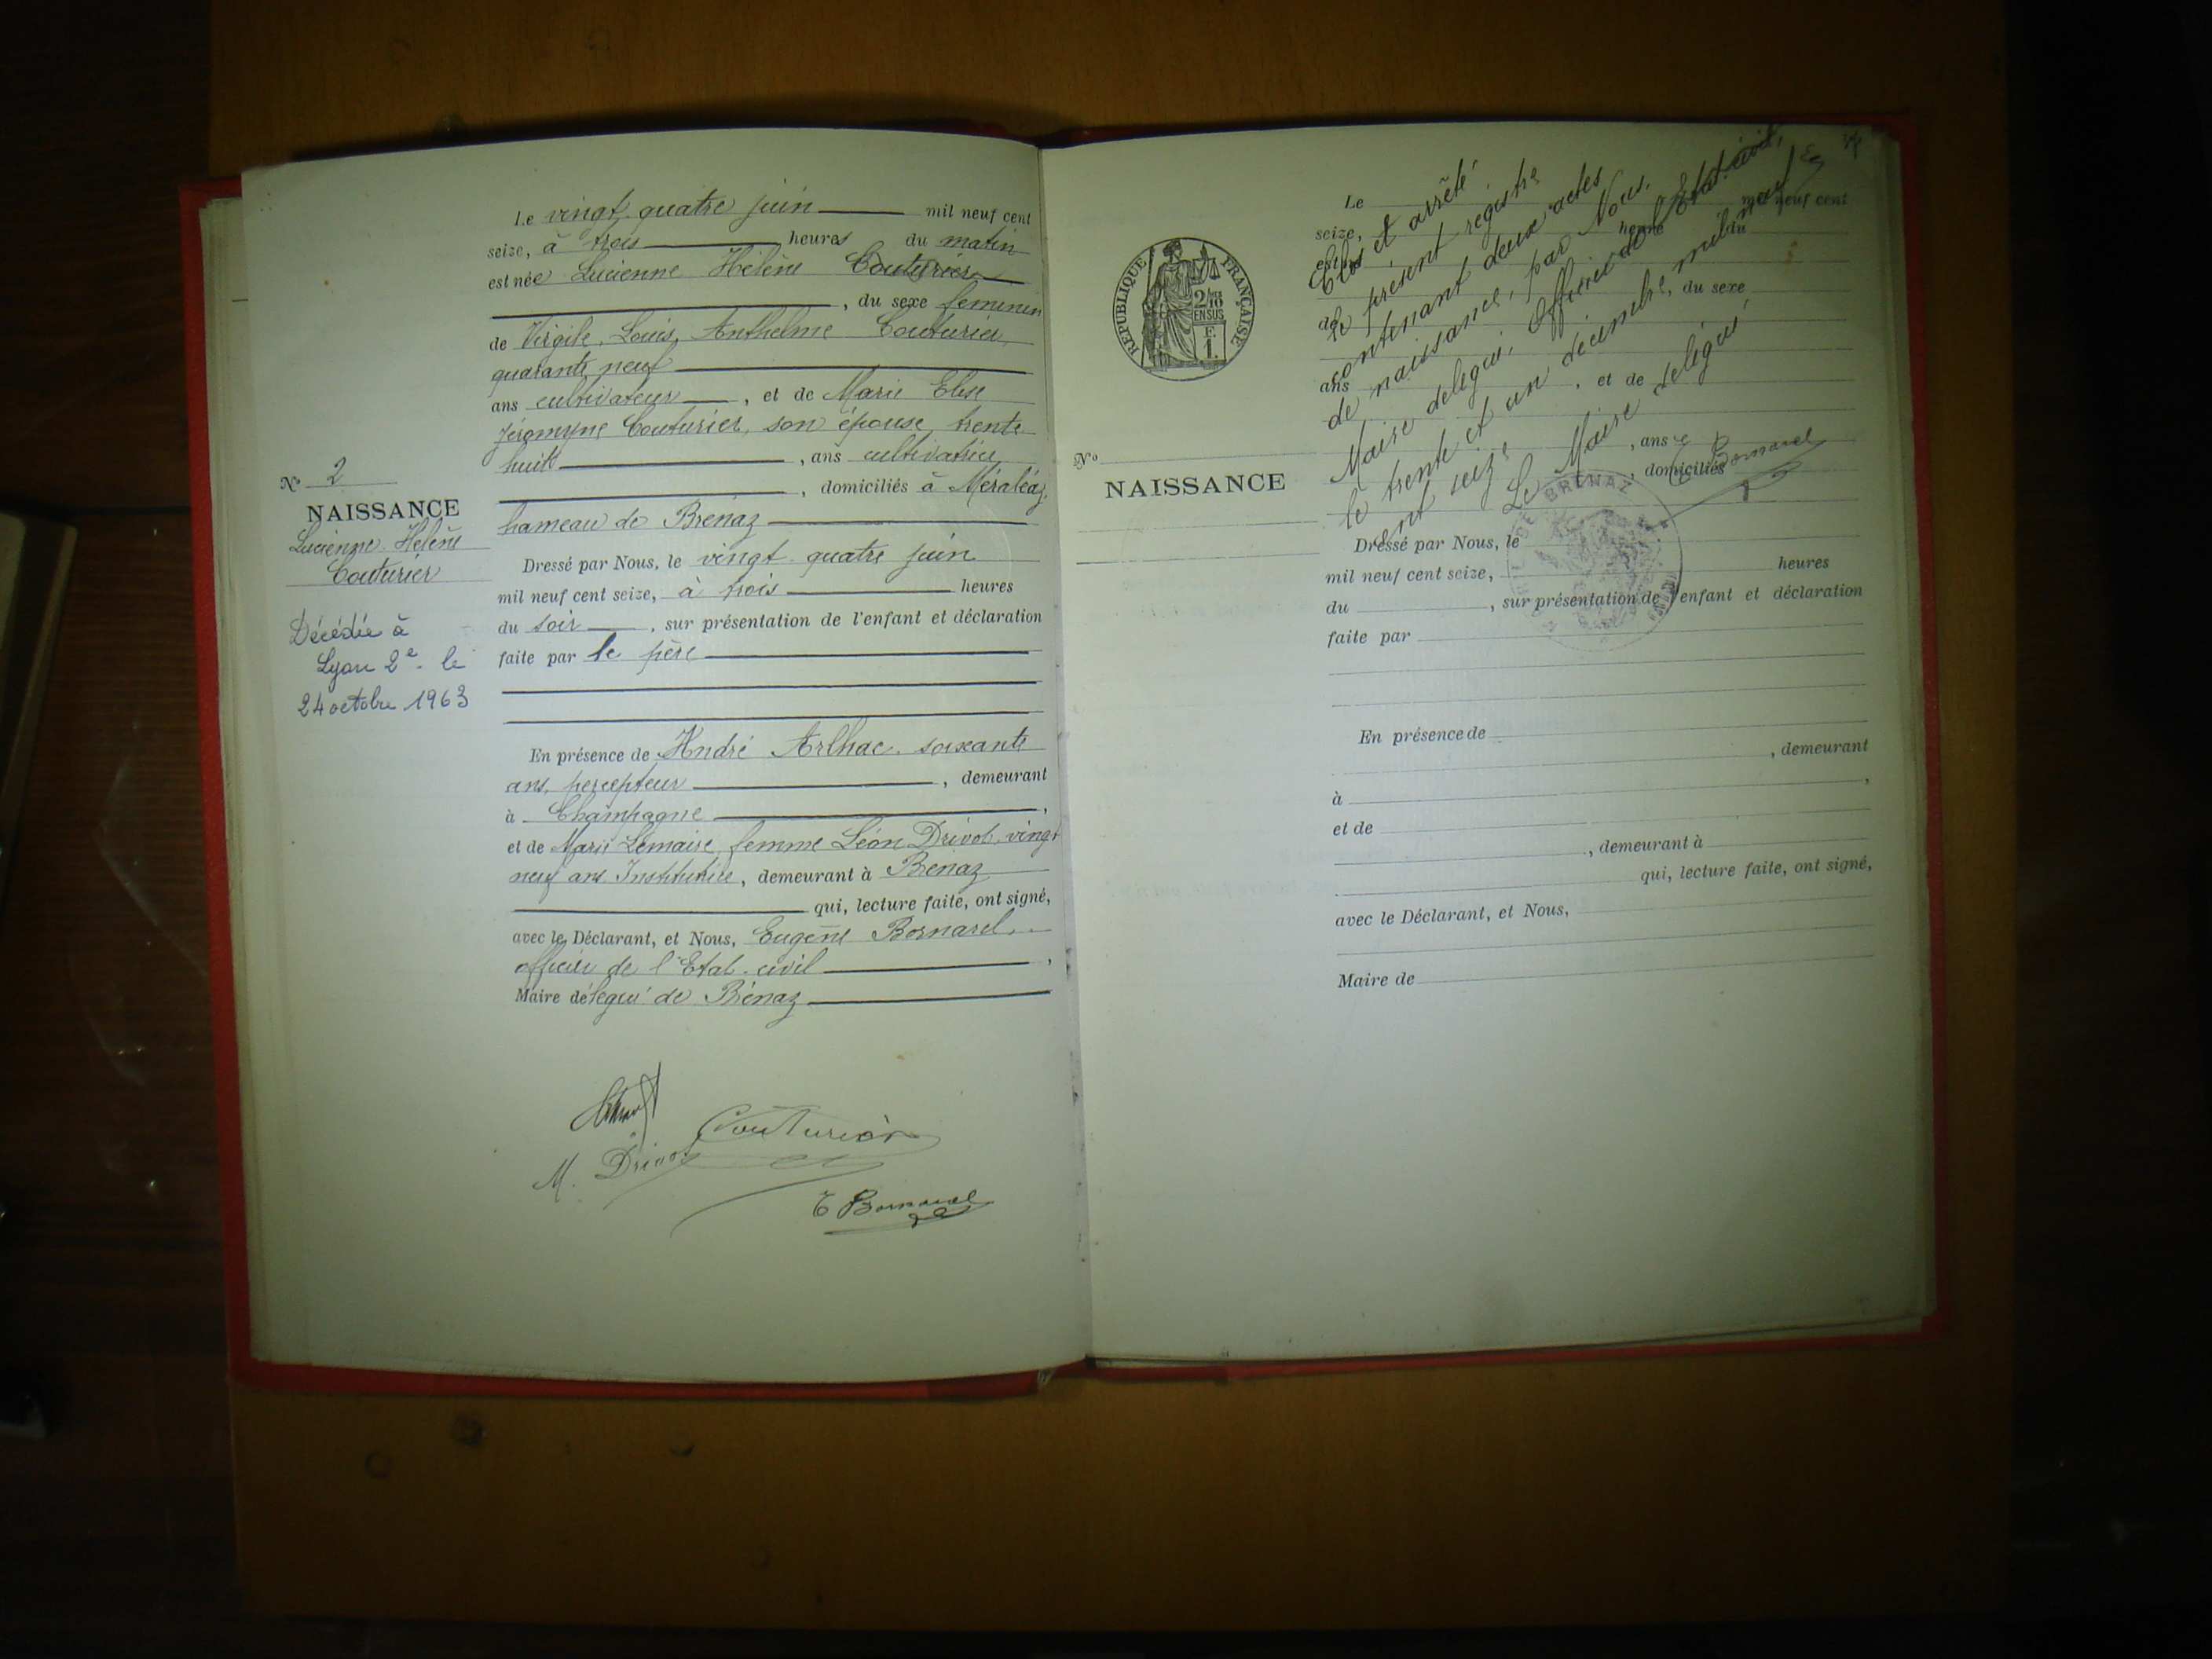 Le vingt quatre juin mil neuf cent
seize, à trois heures du matin
est née Lucienne Hélène Couturier
, du sexe feminin
de Virgile, Louis, Anthelme Couturier,
quarante neuf
ans cultivateur, et de Marie Elise
Jéromyne Couturier, son épouse, trente
huit, ans cultivatrice
, domiciliés à Méraléaz,
hameau de Brénaz
Nº 2
NAISSANCE
Lucienne Hélène
Couturier
Décédée à
Lyon 2e le
24 octobre 1963
Dressé par Nous, le vingt quatre juin
mil neuf cent seize, à trois heures
du soir, sur présentation de l'enfant et déclaration
faite par le père
En présence de André Arlhac, soixante
ans, percepteur, demeurant
à Champagne,
et de Marie Lemaire, femme Léon Drivot, vingt
neuf ans Institutrice, demeurant à Brénaz
qui, lecture faite, ont signé,
avec le Déclarant, et Nous, Eugène Bornarel,
officier de l'Etat-civil,
Maire délégué de Brénaz
Couturier
M. Drivot
E Bornarel
RÉPUBLIQUE FRANÇAISE
2/10 EN SUS
F.
1.
Nº
NAISSANCE
Le mil neuf cent
seize, heure du
est né
, du sexe
de
ans, et de
, ans
, domiciliés
Clos et arrêté
le présent registre
contenant deux actes
de naissance, par Nous,
Maire délégué, Officier de l'Etat-civil,
le trente et un décembre mil neuf
cent seize
Le Maire délégué,
E Bornarel
BRÉNAZ
Dressé par Nous, le
mil neuf cent seize, heures
du, sur présentation de l'enfant et déclaration
faite par
En présence de
, demeurant
à,
et de
, demeurant à
qui, lecture faite, ont signé,
avec le Déclarant, et Nous,
Maire de